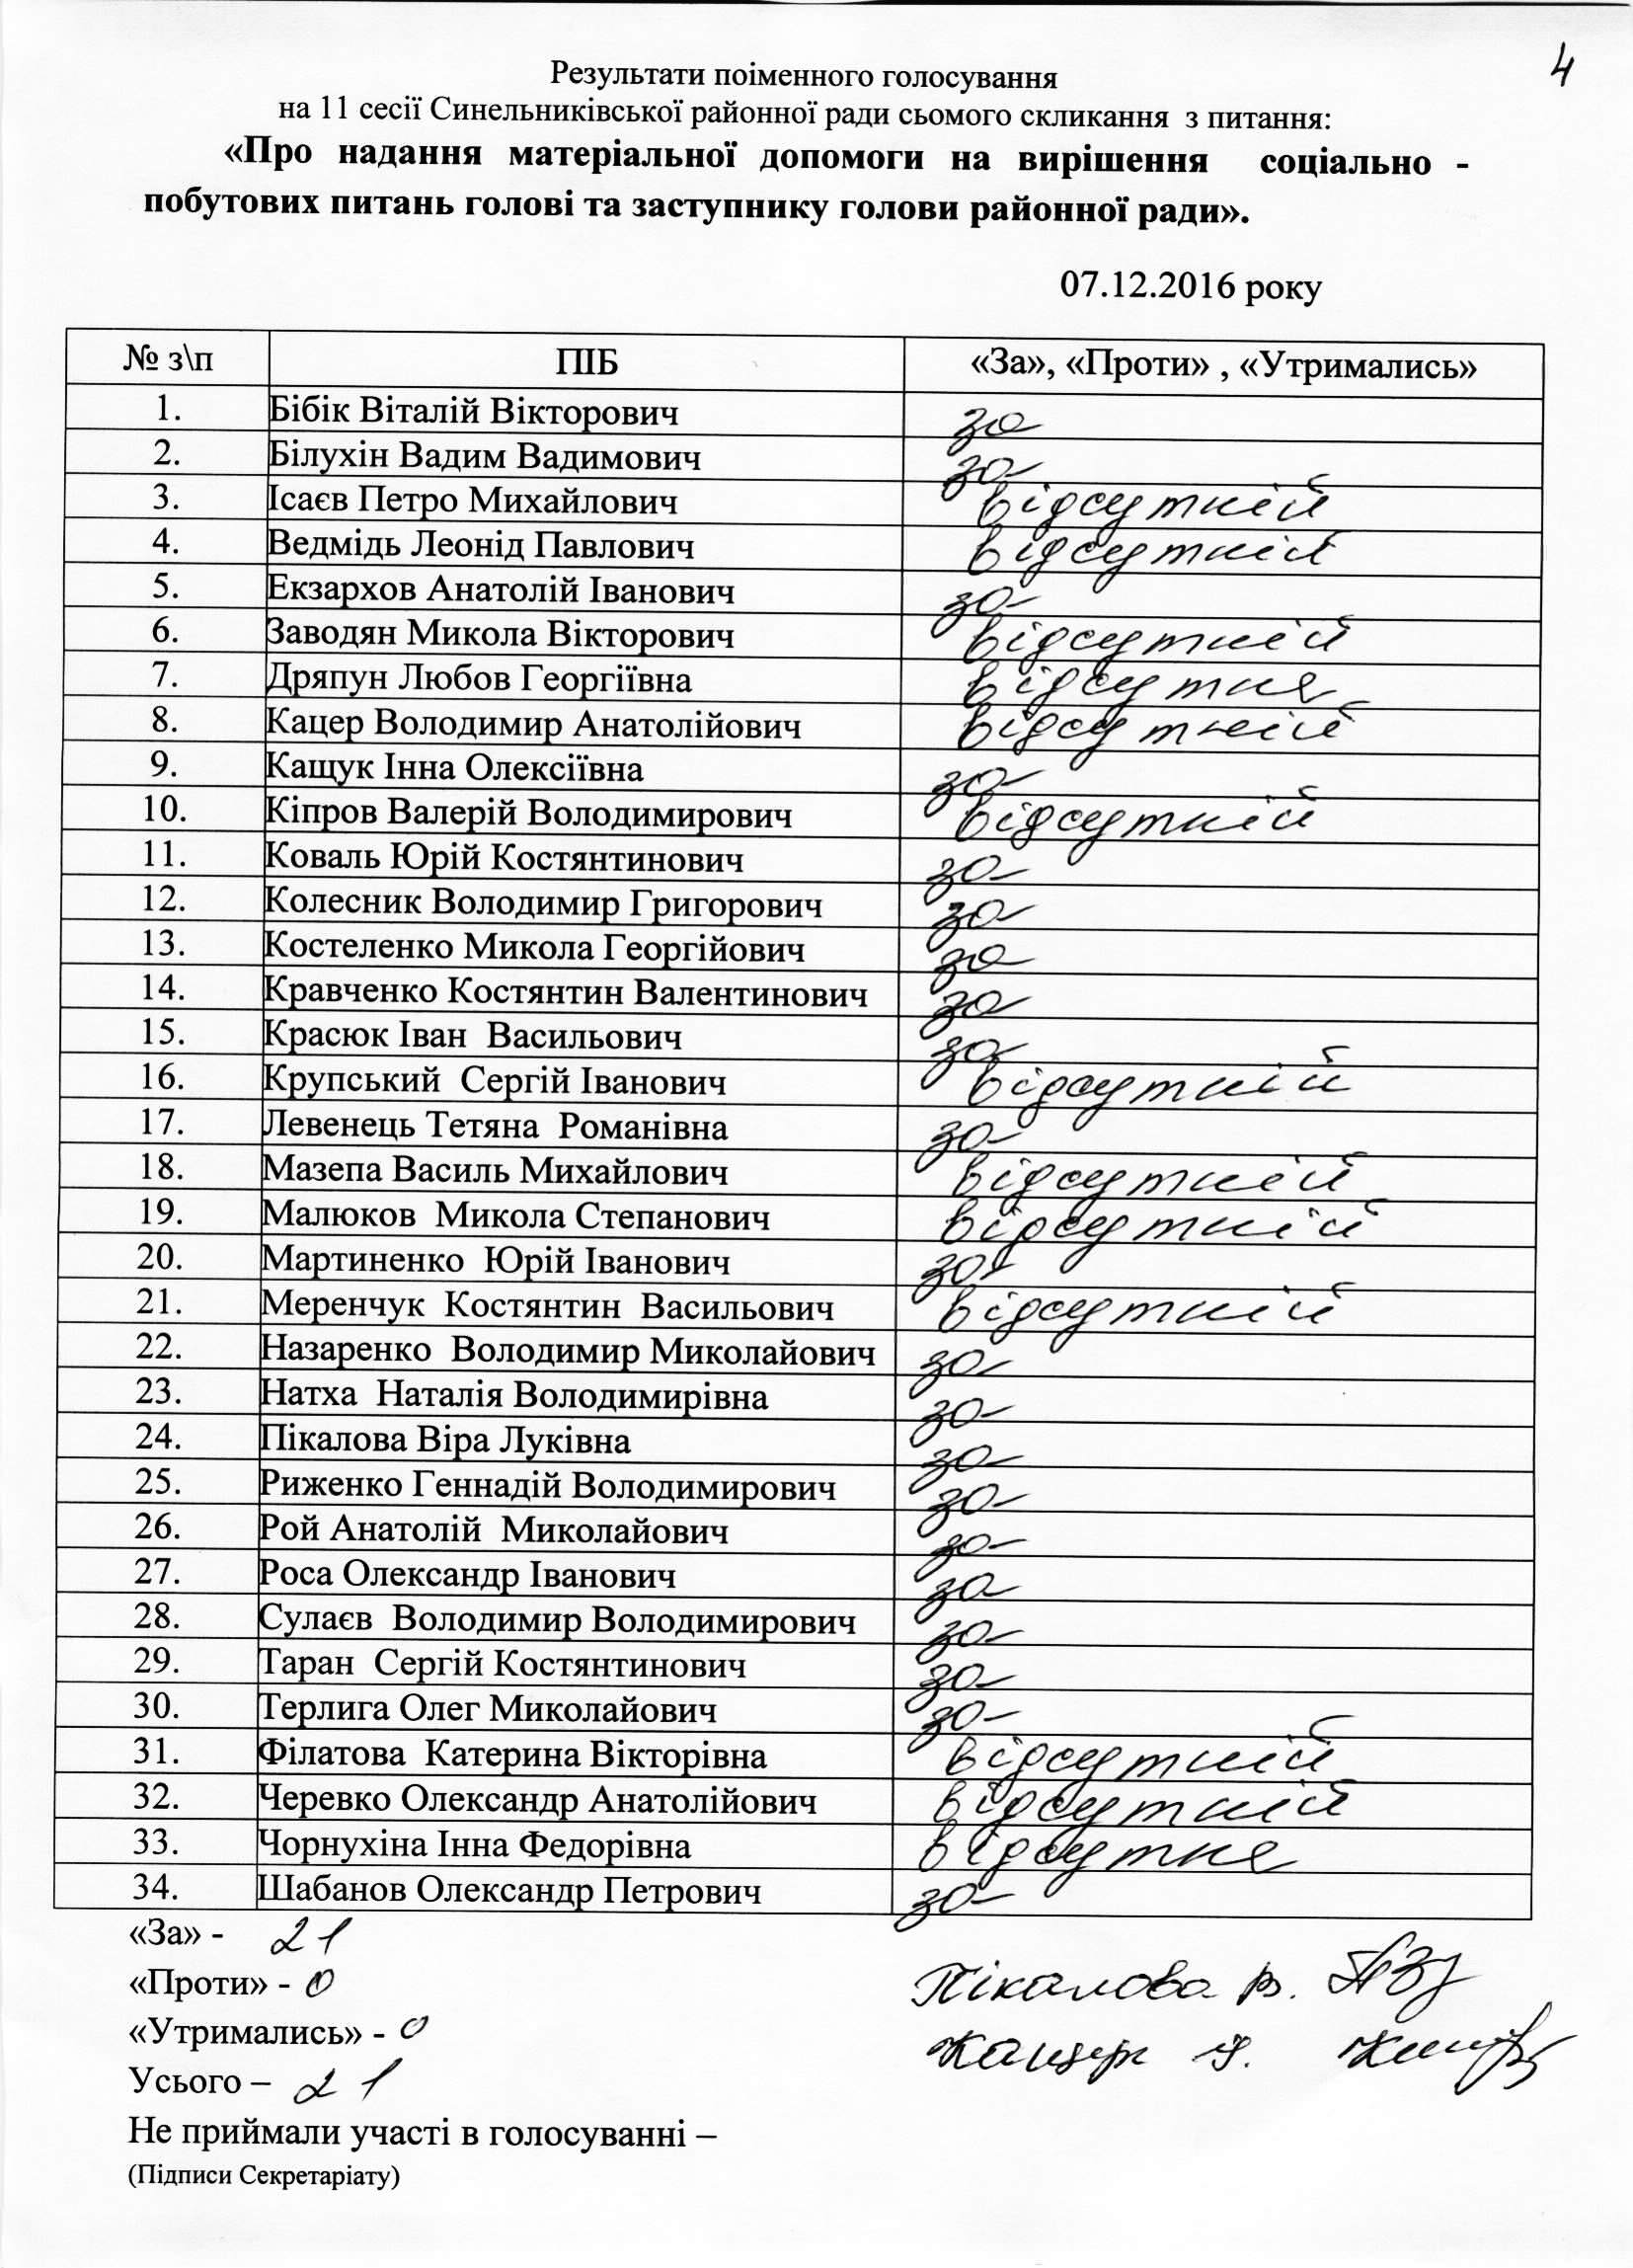 4
Результати поіменного голосування
на 11 сесії Синельниківської районної ради сьомого скликання з питання:
«Про надання матеріальної допомоги на вирішення соціально -
побутових питань голові та заступнику голови районної ради».
07.12.2016 року
№ з\п ПІБ «За», «Проти» , «Утримались»
1. Бібік Віталій Вікторович за
2. Білухін Вадим Вадимович за
3. Ісаєв Петро Михайлович відсутній
4. Ведмідь Леонід Павлович відсутній
5. Екзархов Анатолій Іванович за
6. Заводян Микола Вікторович відсутній
7. Дряпун Любов Георгіївна відсутня
8. Кацер Володимир Анатолійович відсутній
9. Кащук Інна Олексіївна за
10. Кіпров Валерій Володимирович відсутній
11. Коваль Юрій Костянтинович за
12. Колесник Володимир Григорович за
13. Костеленко Микола Георгійович за
14. Кравченко Костянтин Валентинович за
15. Красюк Іван Васильович за
16. Крупський Сергій Іванович відсутній
17. Левенець Тетяна Романівна за
18. Мазепа Василь Михайлович відсутній
19. Малюков Микола Степанович відсутній
20. Мартиненко Юрій Іванович за
21. Меренчук Костянтин Васильович відсутній
22. Назаренко Володимир Миколайович за
23. Натха Наталія Володимирівна за
24. Пікалова Віра Луківна за
25. Риженко Геннадій Володимирович за
26. Рой Анатолій Миколайович за
27. Роса Олександр Іванович за
28. Сулаєв Володимир Володимирович за
29. Таран Сергій Костянтинович за
30. Терлига Олег Миколайович за
31. Філатова Катерина Вікторівна відсутній
32. Черевко Олександр Анатолійович відсутній
33. Чорнухіна Інна Федорівна відсутня
34. Шабанов Олександр Петрович за
«За» - 21
«Проти» - 0 Пікалова В.
«Утримались» - 0 Кащук І.
Усього – 21
Не приймали участі в голосуванні –
(Підписи Секретаріату)